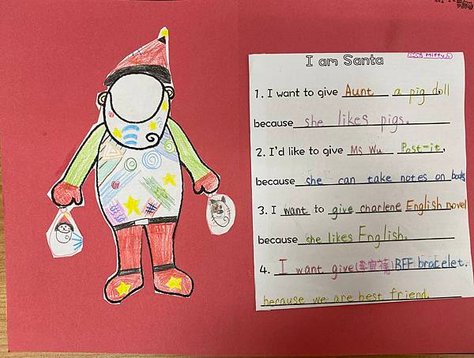 I am Santa
1. I want to give Aunt a pig doll
because she likes pigs.
2. I'd like to give Ms Wu Post-it,
because she can take notes on books
3. I want to give charlene English novel
because she likes English.
4. I want give BFF bracelet.
because we are best friend.